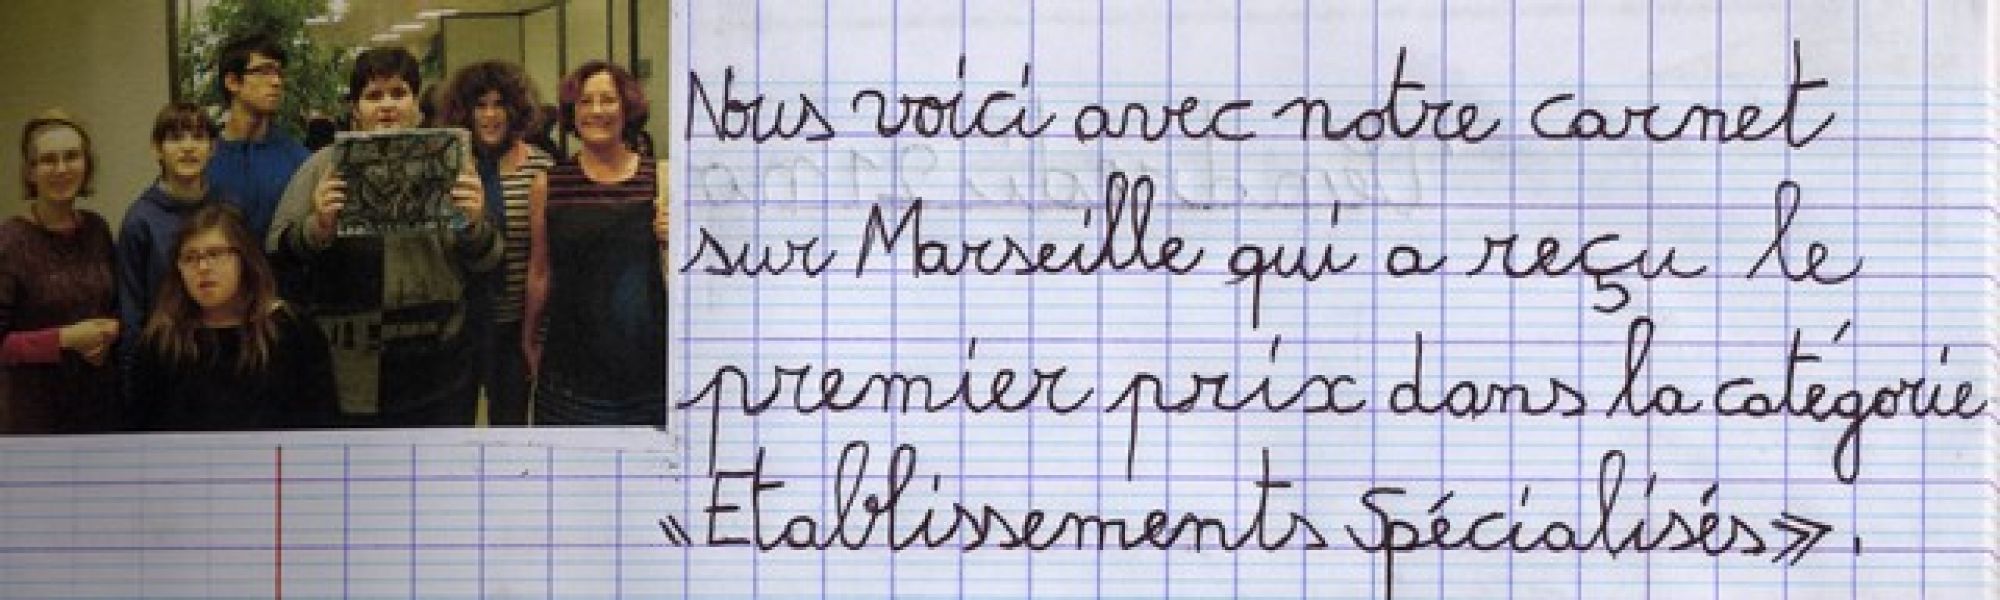 Nous voici avec notre carnet
sur Marseille qui a reçu le
premier prix dans la catégorie
« Etablissements Spécialisés ».